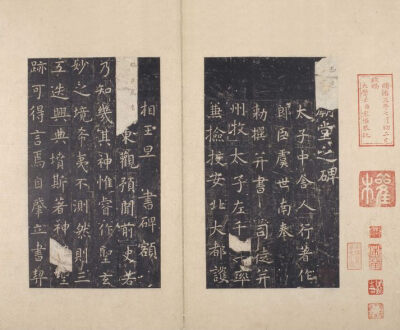 廟堂之碑
太子中舍人行著作
郎臣虞世南奉
勅撰并書 司徒并
州牧太子左千 率
兼檢挍安北大都護
相王旦 書碑額
東觀預聞前史若
乃知幾其神惟睿作聖玄
妙之境希夷不測然則三
五迭興典墳斯著神
跡可得言焉自肇立書契